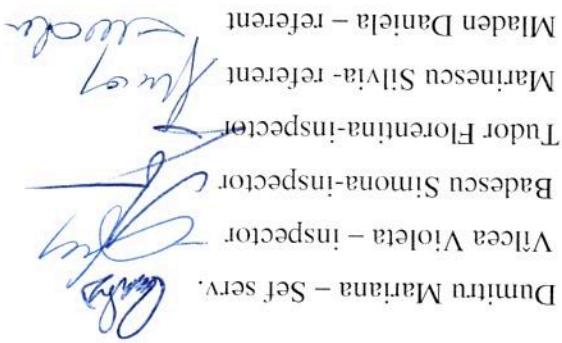 Dumitru Mariana – Sef serv.
Vîlcea Violeta – inspector
Badescu Simona-inspector
Tudor Florentina-inspector
Marinescu Silvia- referent
Mladen Daniela – referent